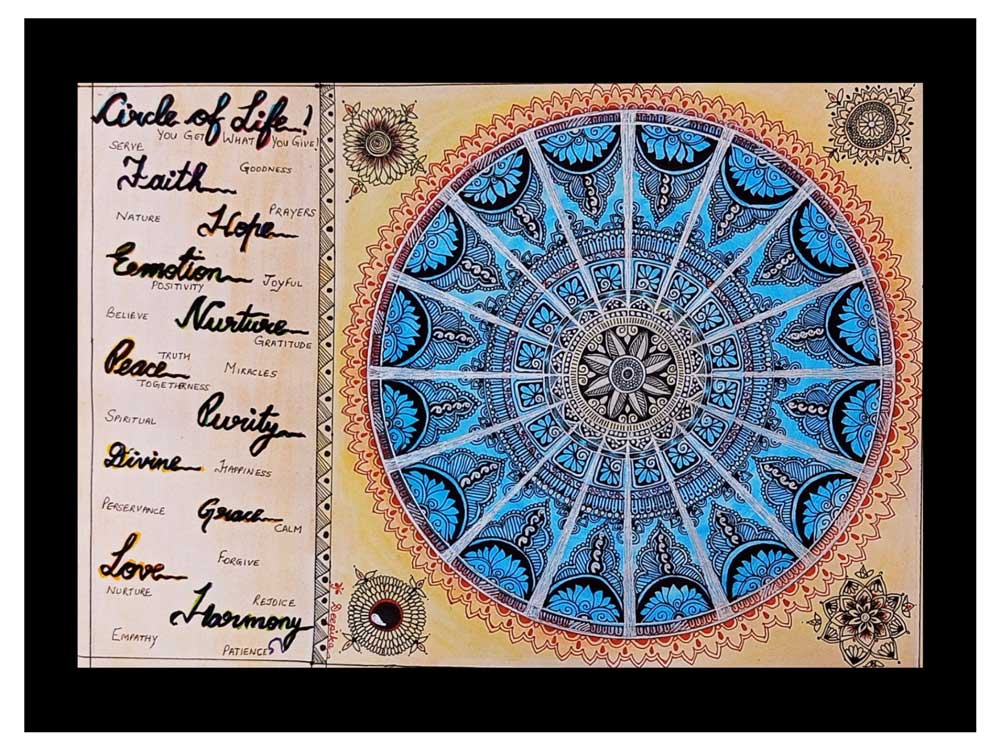 Circle of Life!
YOU GET WHAT YOU GIVE!
SERVE
GOODNESS
Faith
PRAYERS
NATURE
Hope
Eemotion
JOYFUL
POSITIVITY
BELIEVE
Nurture
GRATITUDE
TRUTH
Peace
MIRACLES
TOGETHERNESS
SPIRITUAL
Purity
Divine
HAPPINESS
PERSERVANCE
Grace
CALM
FORGIVE
Love
NURTURE
REJOICE
Harmony
EMPATHY
PATIENCE